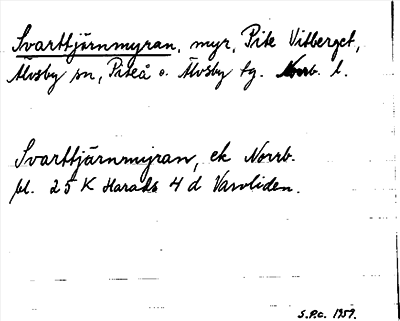 Svarttjärnmyran, myr, Pite Vitberget,
Älvsby sn, Piteå o. Älvsby tg. Norrb. l.
Svarttjärnmyran, ek Norrb.
bl. 25 K Harads 4 d Varvliden.
S.P.c. 1959.